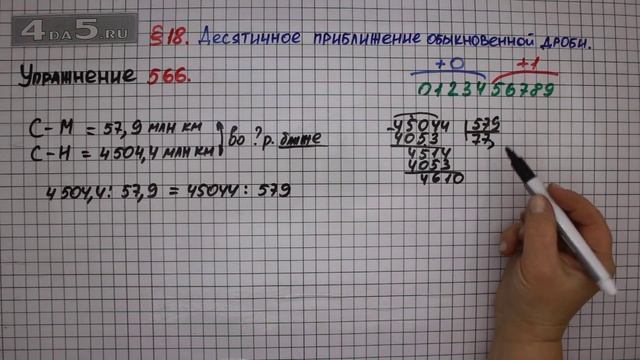 4DA5.RU
§18. Десятичное приближение обыкновенной дроби.
Упражнение 566.
+0 +1
0123456789
С-М = 57,9 млн км
С-Н = 4504,4 млн км
во ? р. больше
4504,4 : 57,9 = 45044 : 579
-45044 |579
4053 77,
4514
4053
4610